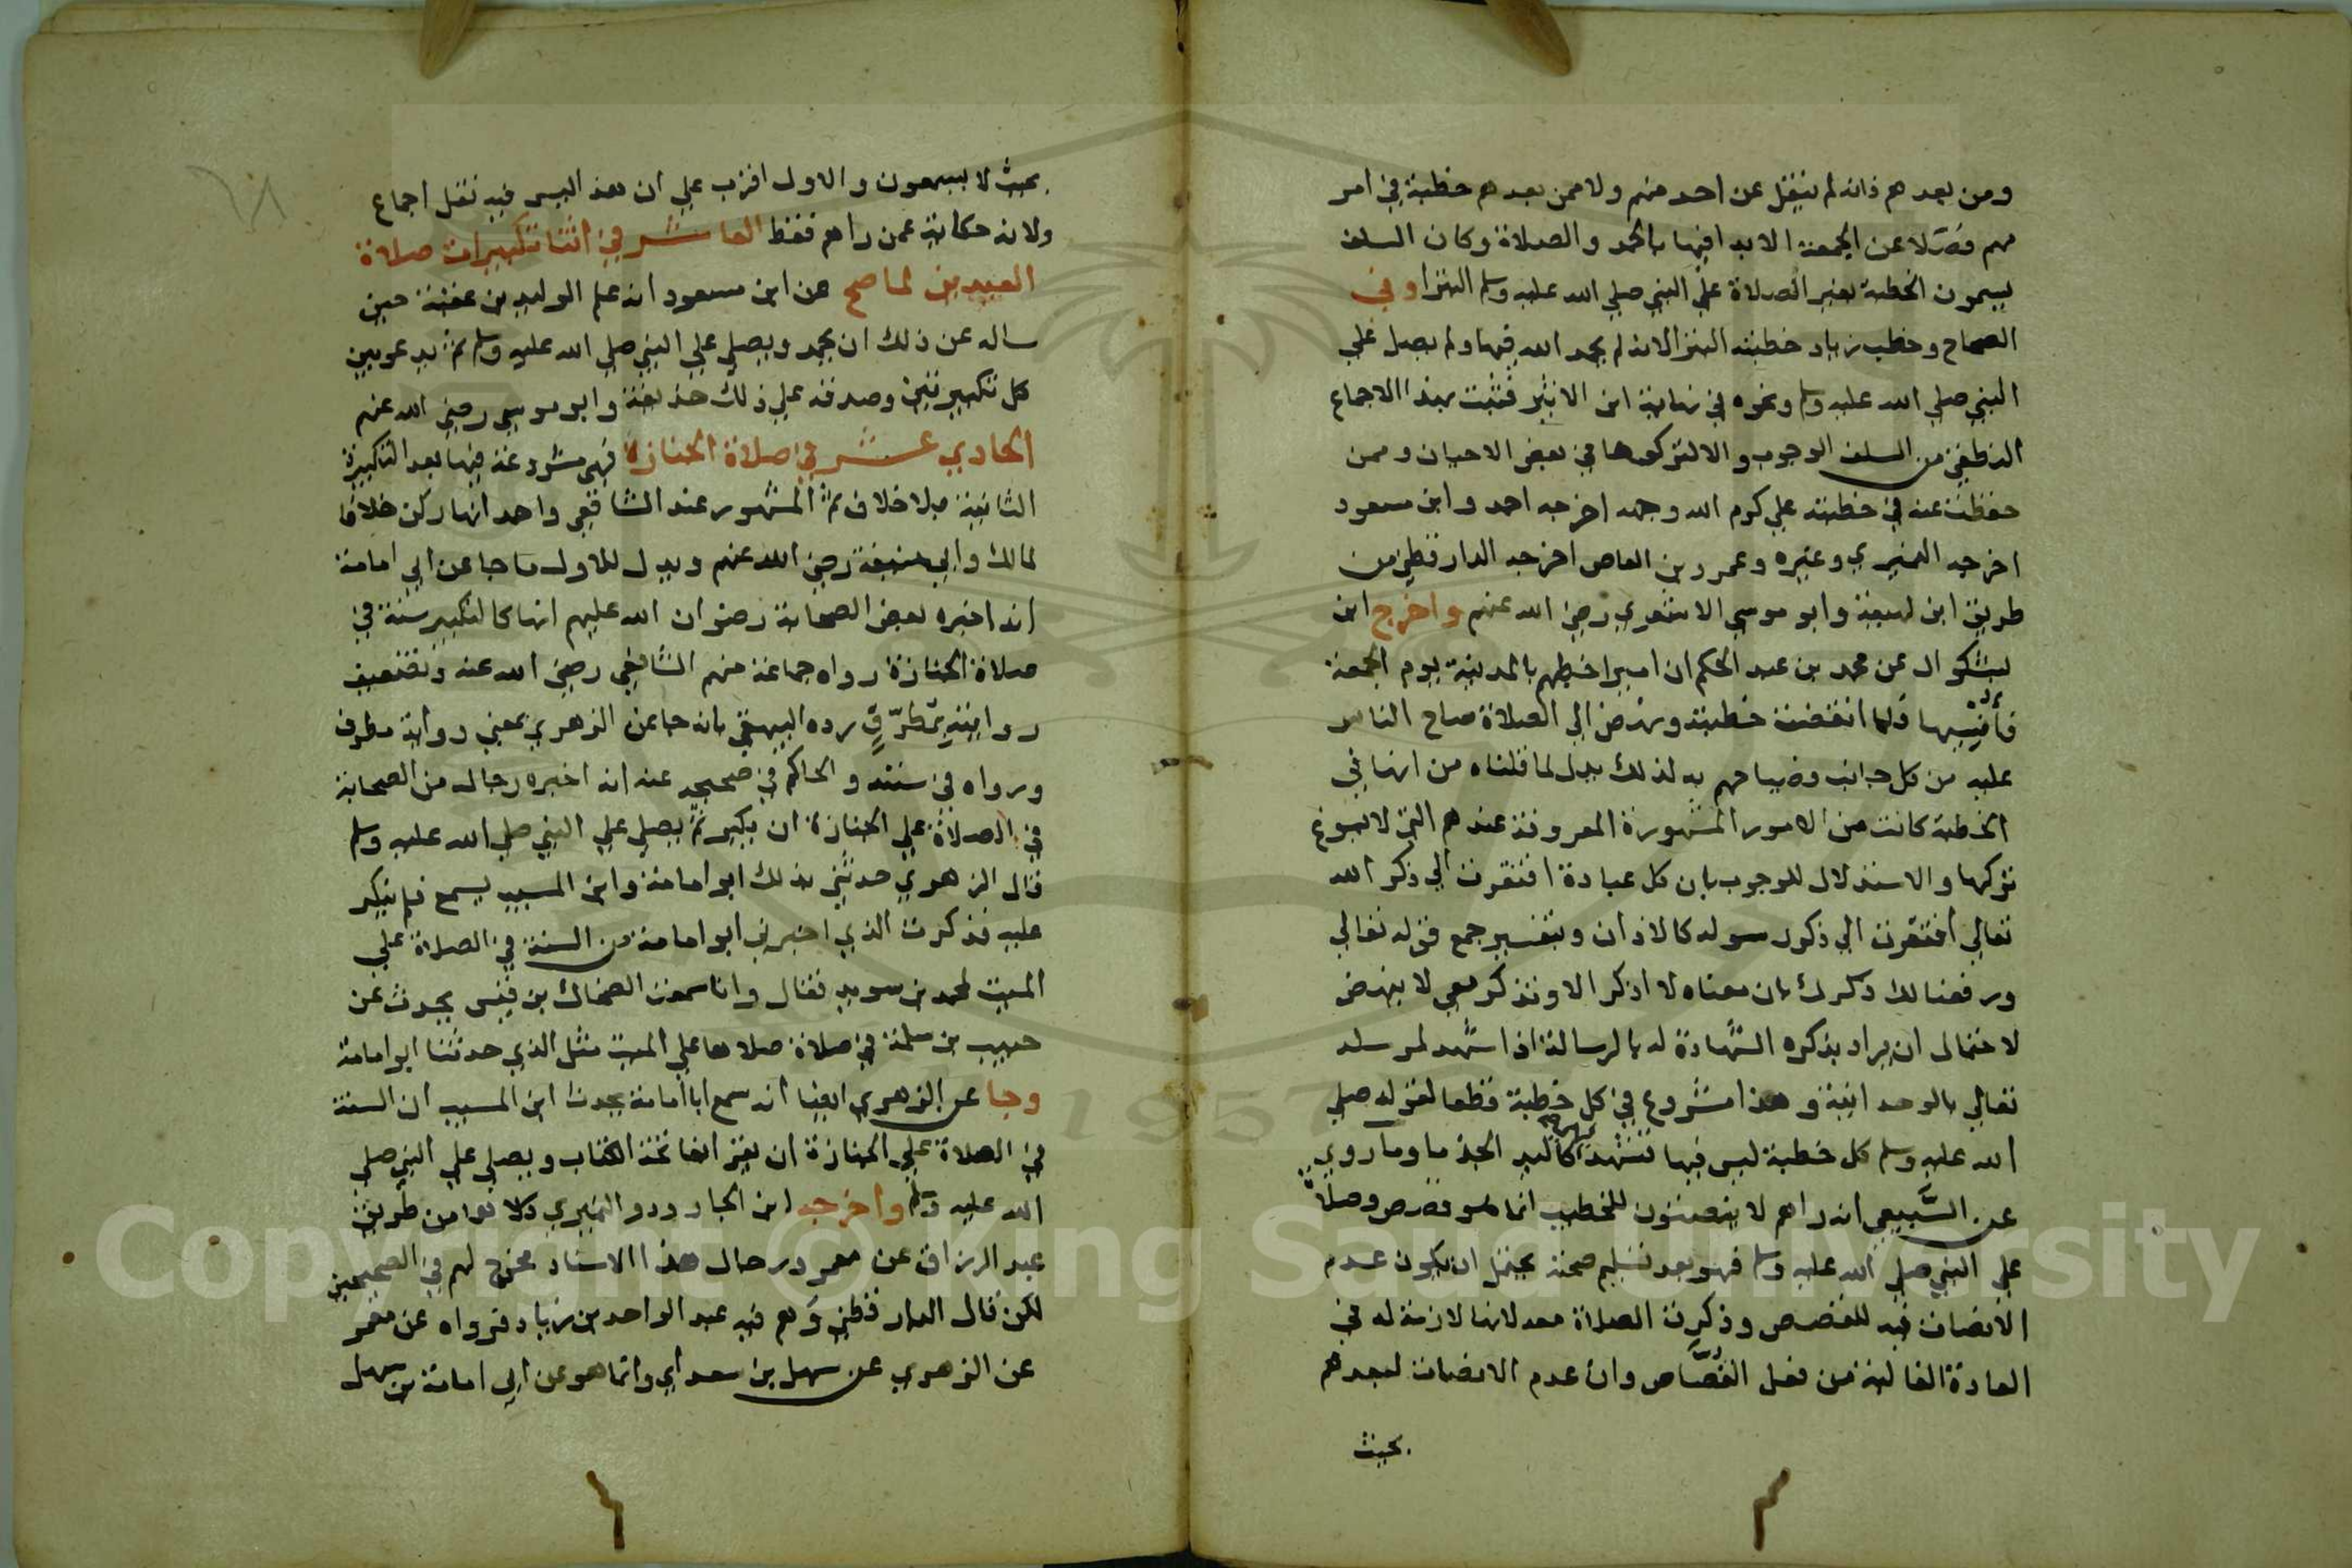 ومن بعدهم فانه لم ينقل عن احد منهم ولا ممن بعدهم خطبة في امر
مهم فضلا عن الجمعة الا بدا فيها بالحمد والصلاة وكان السلف
يسمون الخطبة بغير الصلاة علي النبي صلي الله عليه وسلم البترا وفي
الصحاح وخطب زياد خطبته البترا لانه لم يحمد الله فيها ولم يصل علي
النبي صلي الله عليه وسلم ونحوه في نهاية ابن الاثير فثبت بهذا الاجماع
من السلف الوجوب والا لتركوها في بعض الاحيان وممن
حفظت عنه في خطبته علي كرم الله وجهه اخرجه احمد وابن مسعود
اخرجه النميري وغيره وعمرو بن العاص اخرجه الدارقطني من
طريق ابن لهيعة وابو موسي الاشعري رضي الله عنهم واخرج ابن
بشكوال عن محمد بن عبد الحكم ان اميرا خطبهم بالمدينة يوم الجمعة
فأنسيها فلما انقضت خطبته ونهض الي الصلاة صاح الناس
عليه من كل جانب وصياحهم به لذلك يدل لما قلناه من انها في
الخطبة كانت من الامور المشهورة المعروفة عندهم التي لا يسوغ
تركها والاستدلال للوجوب بان كل عبادة افتقرت الي ذكر الله
تعالي افتقرت الي ذكر رسوله كالاذان وبتفسير جمع قوله تعالي
ورفعنا لك ذكرك بان معناه لا اذكر الا وتذكر معي لا ينهض
لاحتمال ان يراد بذكره الشهادة له بالرسالة اذا شهد لمرسله
تعالي بالوحدانية وهذا مشروع في كل خطبة قطعا لقوله صلي
الله عليه وسلم كل خطبة ليس فيها تشهد كاليد الجذما وما روي
عن السبيعي انه راهم لا ينصتون للخطيب انما هو قصص وصلاة
علي النبي صلي الله عليه وسلم فهو بعد تسليم صحته يحتمل ان يكون عدم
الانصات فيه للقصص وذكرت الصلاة معه لانها لازمة له في
العادة الغالبة من فعل القصاص وان عدم الانصات لبعدهم
بحيث
بحيث لا يسمعون والاول اقرب علي ان هذا ليس فيه نقل اجماع
ولانه حكاية عمن راهم فقط العاشر في اثنا تكبيرات صلاة
العيدين لما صح عن ابن مسعود انه علم الوليد بن عقبة حين
ساله عن ذلك ان يحمد ويصلي علي النبي صلي الله عليه وسلم ثم يدعو بين
كل تكبيرتين وصدقه علي ذلك حذيفة وابو موسي رضي الله عنهم
الحادي عشر في صلاة الجنازة فهي مشروعة فيها بعد التكبيرة
الثانية بلا خلاف ثم المشهور عند الشافعي واحمد انها ركن خلافا
لمالك وابي حنيفة رضي الله عنهم ويدل للاول ما جا عن ابي امامة
انه اخبره بعض الصحابة رضوان الله عليهم انها كالتكبير سنة في
صلاة الجنازة رواه جماعة منهم الشافعي رضي الله عنه وتضعيف
روايته بمطرف رده البيهقي بانه جا عن الزهري بمعني رواية مطرف
ورواه في سننه والحاكم في صحيحه عنه انه اخبره رجال من الصحابة
في الصلاة علي الجنازة ان يكبر ثم يصلي علي النبي صلي الله عليه وسلم
قال الزهري حدثني بذلك ابو امامة وابن المسيب يسمع فلم ينكر
عليه فذكرت الذي اخبرني ابو امامة من السنة في الصلاة علي
الميت لمحمد بن سويد فقال وانا سمعت الضحاك بن قيس يحدث عن
حبيب بن مسلمة في صلاة صلاها علي الميت مثل الذي حدثنا ابو امامة
وجا عن الزهري ايضا انه سمع ابا امامة يحدث ابن المسيب ان السنة
في الصلاة علي الجنازة ان يقرا بفاتحة الكتاب ويصلي علي النبي صلي
الله عليه وسلم واخرجه ابن الجارود والنميري كلاهما من طريق
عبد الرزاق عن معمر ورجال هذا الاسناد مخرج لهم في الصحيحين
لكن قال الدارقطني وهم فيه عبد الواحد بن زياد فرواه عن معمر
عن الزهري عن سهل بن سعد اي وانما هو عن ابي امامة بن سهل
Copyright © King Saud University
1957